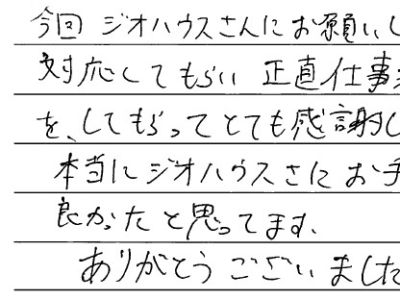 今回 ジオハウスさんにお願いし
対応してもらい 正直仕事
を、してもらってとても感謝し
本当にジオハウスさにお手
良かったと思ってます、
ありがとうございました